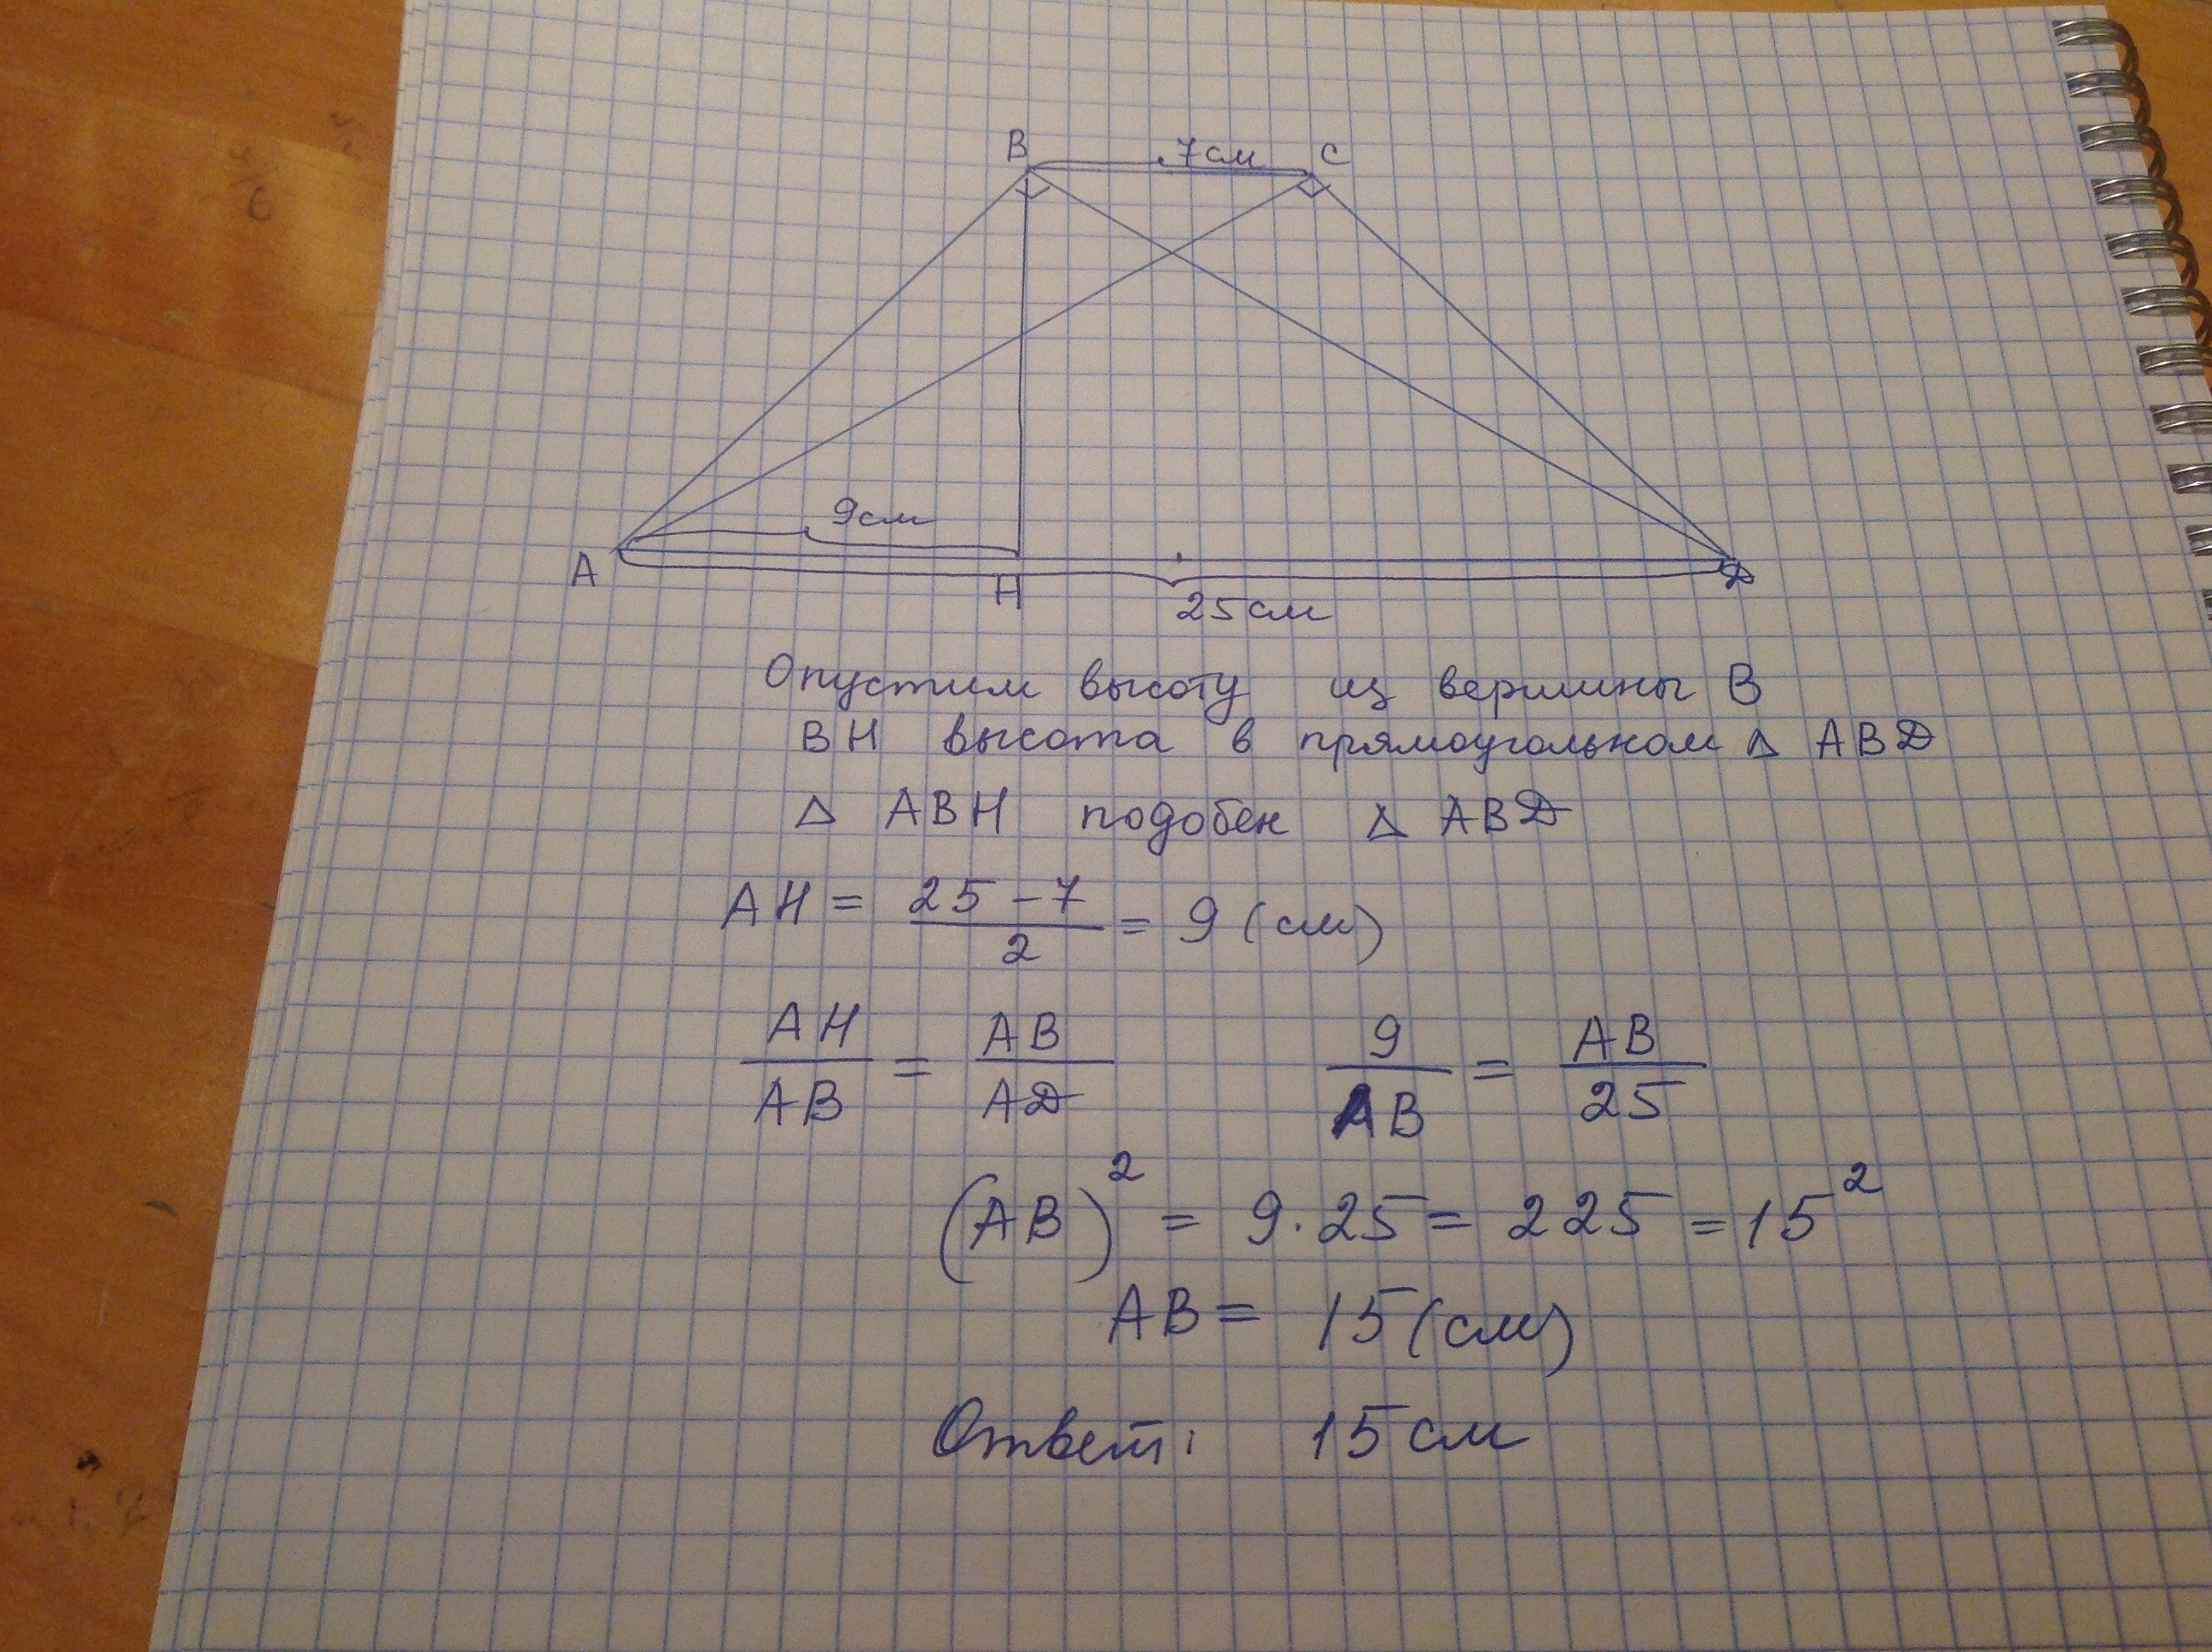 B 7см C
9см
A H D
25см
Опустим высоту из вершины B
BH высота в прямоугольном △ ABD
△ ABH подобен △ ABD
AH = (25 – 7)/2 = 9 (см)
AH/AB = AB/AD 9/AB = AB/25
(AB)² = 9 · 25 = 225 = 15²
AB = 15 (см)
Ответ: 15 см